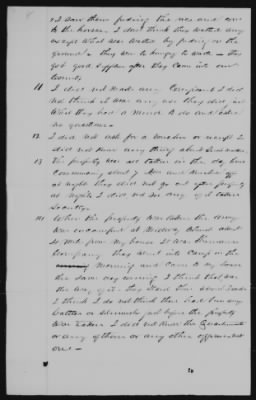 I saw them feeding the
to the horses. I dont think they wasted any
except what was wasted by feeding on the
ground. they were to hungry to waste - they
got good supplies after they came into our
County
11 I did not make any Complaint I did
not think it was any use they did just
what they had a mind to do and asked
no questions -
12 I did not ask for a voucher or receipt I
did not know any thing about such
13 The property was all taken in the day time
Commencing about 7 AM and
at night they did not go out after property
at night I did not see any of it taken
Secretly
14 When the property was taken the army
was encamped at Midway about
miles from my house It was Company
Company they went into Camp in the
morning and came to my house
the same day evening I think that was
the way of it - they staid there about
I think I do not think there had been any
battles or skirmishes just before the property
was taken I did not know the Quartermaster
or any of them or any other officers not
one -